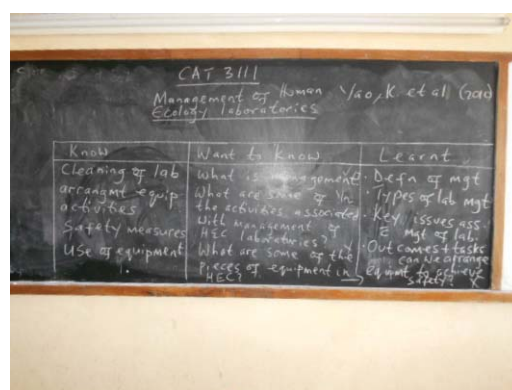 CAT 3111
Management of Human
Ecology laboratories
Yao, K et al
Know
Cleaning of lab
arrangmt equip-
activities
Safety measures
Use of equipment
Want to Know
What is management
What are some of
the activities associated
With management of
HEC laboratories?
What are some of the
pieces of equipment in
HEC?
Learnt
Defn of mgt
Types of lab mgt
Key issues ass.
Mgt of lab.
Outcomes + tasks
can we arrange
eqpmt to achieve
safety?